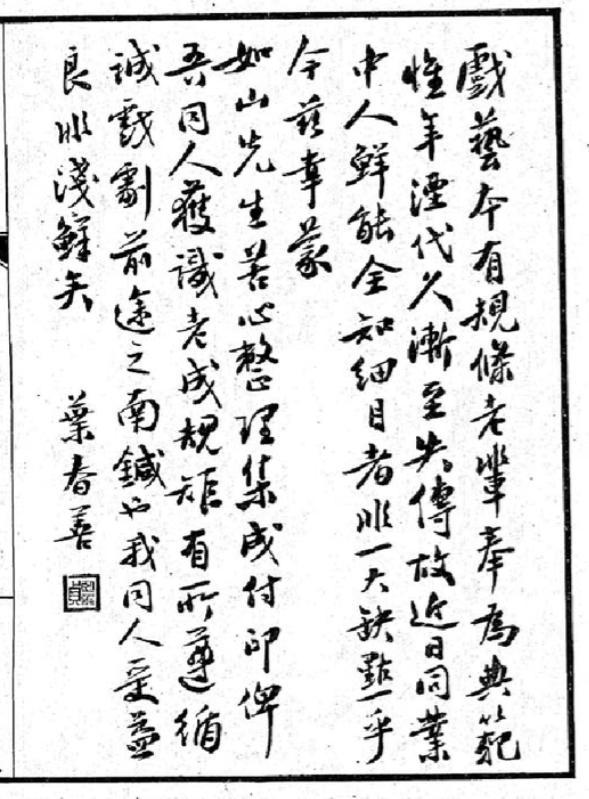 戲藝本有規條老輩奉為典範
惟年湮代久漸至失傳故近日同業
中人鮮能全知細目者非一大缺點乎
今茲幸蒙
如山先生苦心整理集成付印俾
吾同人獲識老成規矩有所遵循
誠戲劇前途之南鍼也我同人受益
良非淺鮮矣
葉春善